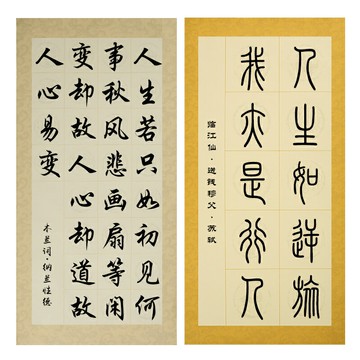 人生若只如初见何
事秋风悲画扇等闲
变却故人心却道故
人心易变
木兰词·纳兰性德
人生如逆旅
我亦是行人
临江仙·送钱穆父·苏轼